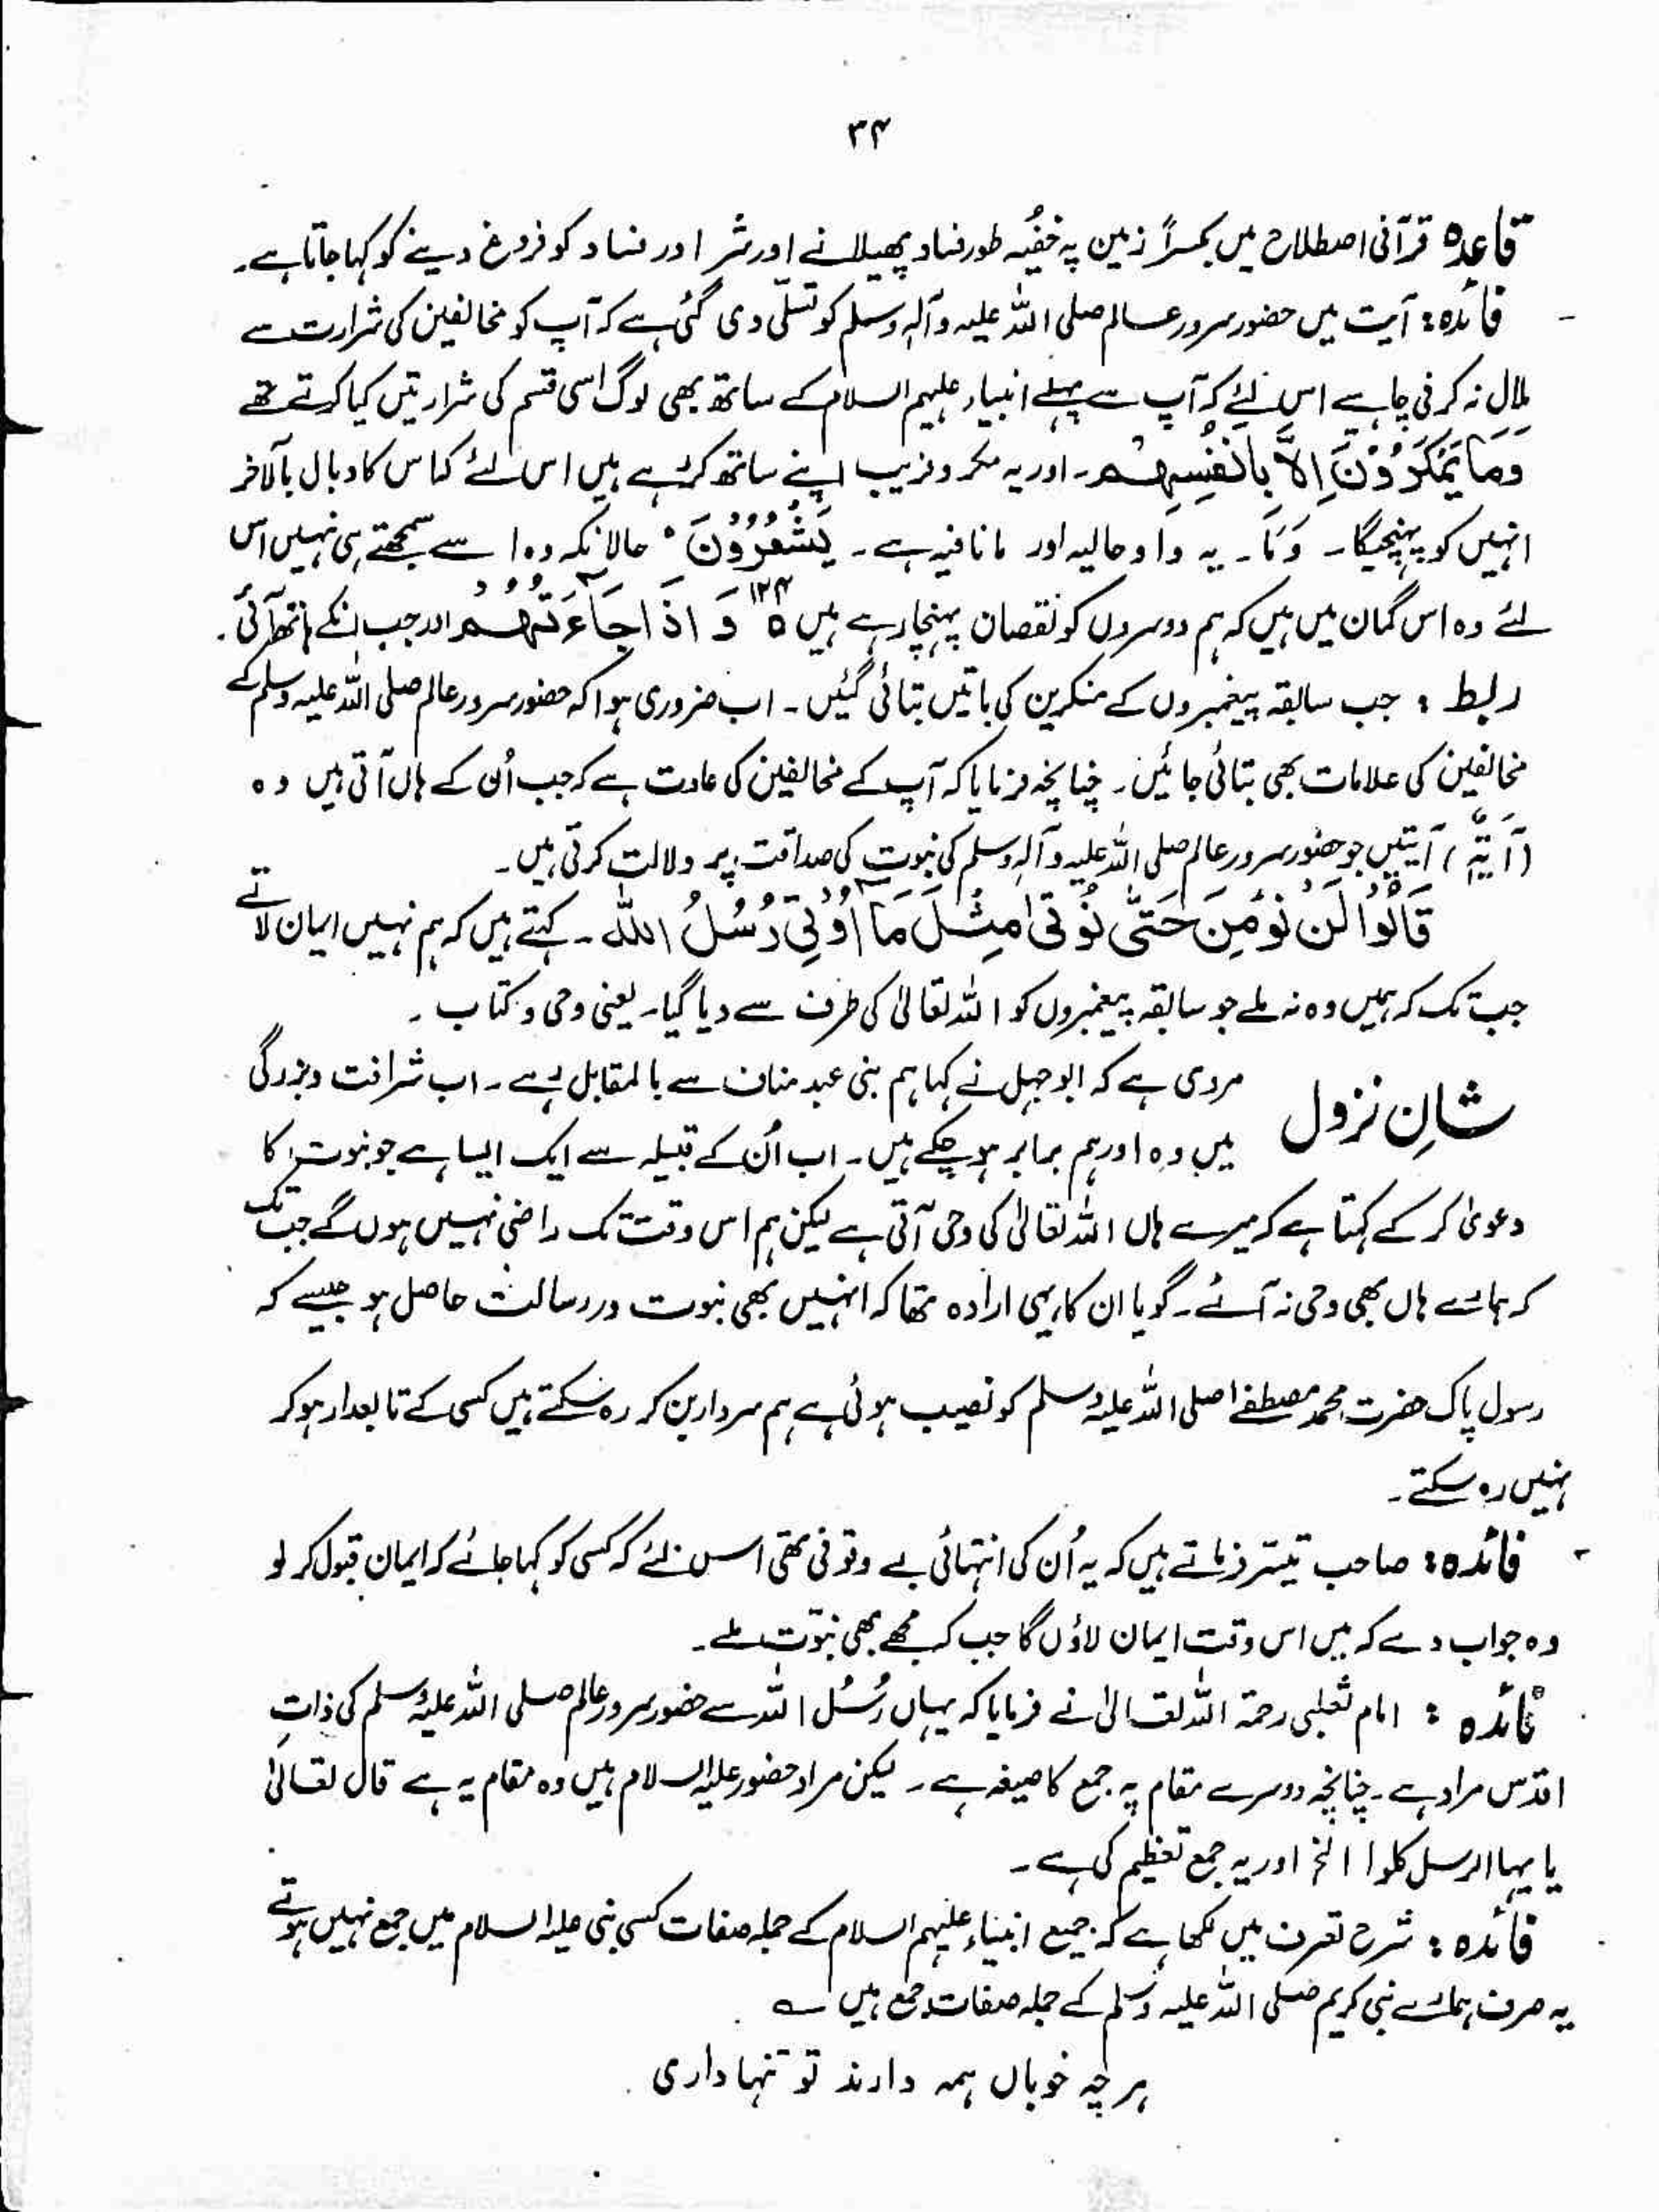 ۳۴
قاعدہ قرآنی اصطلاح میں مکراً زمین پہ خفیہ طور فساد پھیلانے اور شر اور فساد کو فروغ دینے کو کہا جاتا ہے۔
فائدہ : آیت میں حضور سرور عالم صلی اللہ علیہ وآلہ وسلم کو تسلّی دی گئی ہے کہ آپ کو مخالفین کی شرارت سے
ملال نہ کرنی چاہیے اس لئے کہ آپ سے پہلے انبیاء علیہم السلام کے ساتھ بھی لوگ اسی قسم کی شرارتیں کیا کرتے تھے
وَمَا یَمْکُرُوْنَ اِلَّا بِاَنْفُسِہِمْ۔ اور یہ مکر و فریب اپنے ساتھ کر رہے ہیں اس لئے کہ اس کا وبال بالآخر
انہیں کو پہنچیگا۔ وَمَا۔ یہ واو حالیہ اور ما نافیہ ہے۔ یَشْعُرُوْنَ ° حالانکہ وہ اسے سمجھتے ہی نہیں اس
لئے وہ اس گمان میں ہیں کہ ہم دوسروں کو نقصان پہنچا رہے ہیں ۱۲۳ہ وَ اِذَا جَآءَتْہُمْ اور جب انکے ہاتھ آئی۔
ربط : جب سابقہ پیغمبروں کے منکرین کی باتیں بتائی گئیں۔ اب ضروری ہوا کہ حضور سرور عالم صلی اللہ علیہ وسلم کے
مخالفین کی علامات بھی بتائی جائیں۔ چنانچہ فرمایا کہ آپ کے مخالفین کی عادت ہے کہ جب اُن کے ہاں آتی ہیں وہ
(آیَۃٌ) آیتیں جو حضور سرور عالم صلی اللہ علیہ وآلہ وسلم کی نبوت کی صداقت پر دلالت کرتی ہیں۔
قَالُوْا لَنْ نُوْمِنَ حَتّٰی نُوْتٰی مِثْلَ مَآ اُوْتِیَ رُسُلُ اللہ۔ کہتے ہیں کہ ہم نہیں ایمان لاتے
جب تک کہ ہمیں وہ نہ ملے جو سابقہ پیغمبروں کو اللہ تعالیٰ کی طرف سے دیا گیا۔ یعنی وحی و کتاب۔
شانِ نزول مروی ہے کہ ابوجہل نے کہا ہم بنی عبد مناف سے بالمقابل رہے۔ اب شرافت و بزرگی
میں وہ اور ہم برابر ہو چکے ہیں۔ اب اُن کے قبیلہ سے ایک ایسا ہے جو نبوت کا
دعویٰ کر کے کہتا ہے کہ میرے ہاں اللہ تعالیٰ کی وحی آتی ہے لیکن ہم اس وقت تک راضی نہیں ہوں گے جب تک
کہ ہمارے ہاں بھی وحی نہ آئے۔ گویا ان کا یہی ارادہ تھا کہ انہیں بھی نبوت ور رسالت حاصل ہو جیسے کہ
رسول پاک حضرت محمد مصطفےٰ صلی اللہ علیہ وسلم کو نصیب ہوئی ہے ہم سردار بن کر رہ سکتے ہیں کسی کے تابعدار ہو کر
نہیں رہ سکتے۔
فائدہ : صاحب تیسر فرماتے ہیں کہ یہ اُن کی انتہائی بے وقوفی تھی اس لئے کہ کسی کو کہا جائے کہ ایمان قبول کر لو
وہ جواب دے کہ میں اس وقت ایمان لاؤں گا جب کہ مجھے بھی نبوّت ملے۔
فائدہ : امام ثعلبی رحمۃ اللہ تعالیٰ نے فرمایا کہ یہاں رُسُل اللہ سے حضور سرور عالم صلی اللہ علیہ وسلم کی ذاتِ
اقدس مراد ہے۔ چنانچہ دوسرے مقام پہ جمع کا صیغہ ہے۔ لیکن مراد حضور علیہ السلام ہیں وہ مقام یہ ہے قال تعالیٰ
یایہا الرسل کلوا الخ اور یہ جمع تعظیم کی ہے۔
فائدہ : شرح تعرف میں لکھا ہے کہ جمیع انبیاء علیہم السلام کے جملہ صفات کسی نبی علیہ السلام میں جمع نہیں ہوتے
یہ صرف ہمارے نبی کریم صلی اللہ علیہ وسلم کے جملہ صفات جمع ہیں ؎
ہر چہ خوباں ہمہ دارند تو تنہا داری